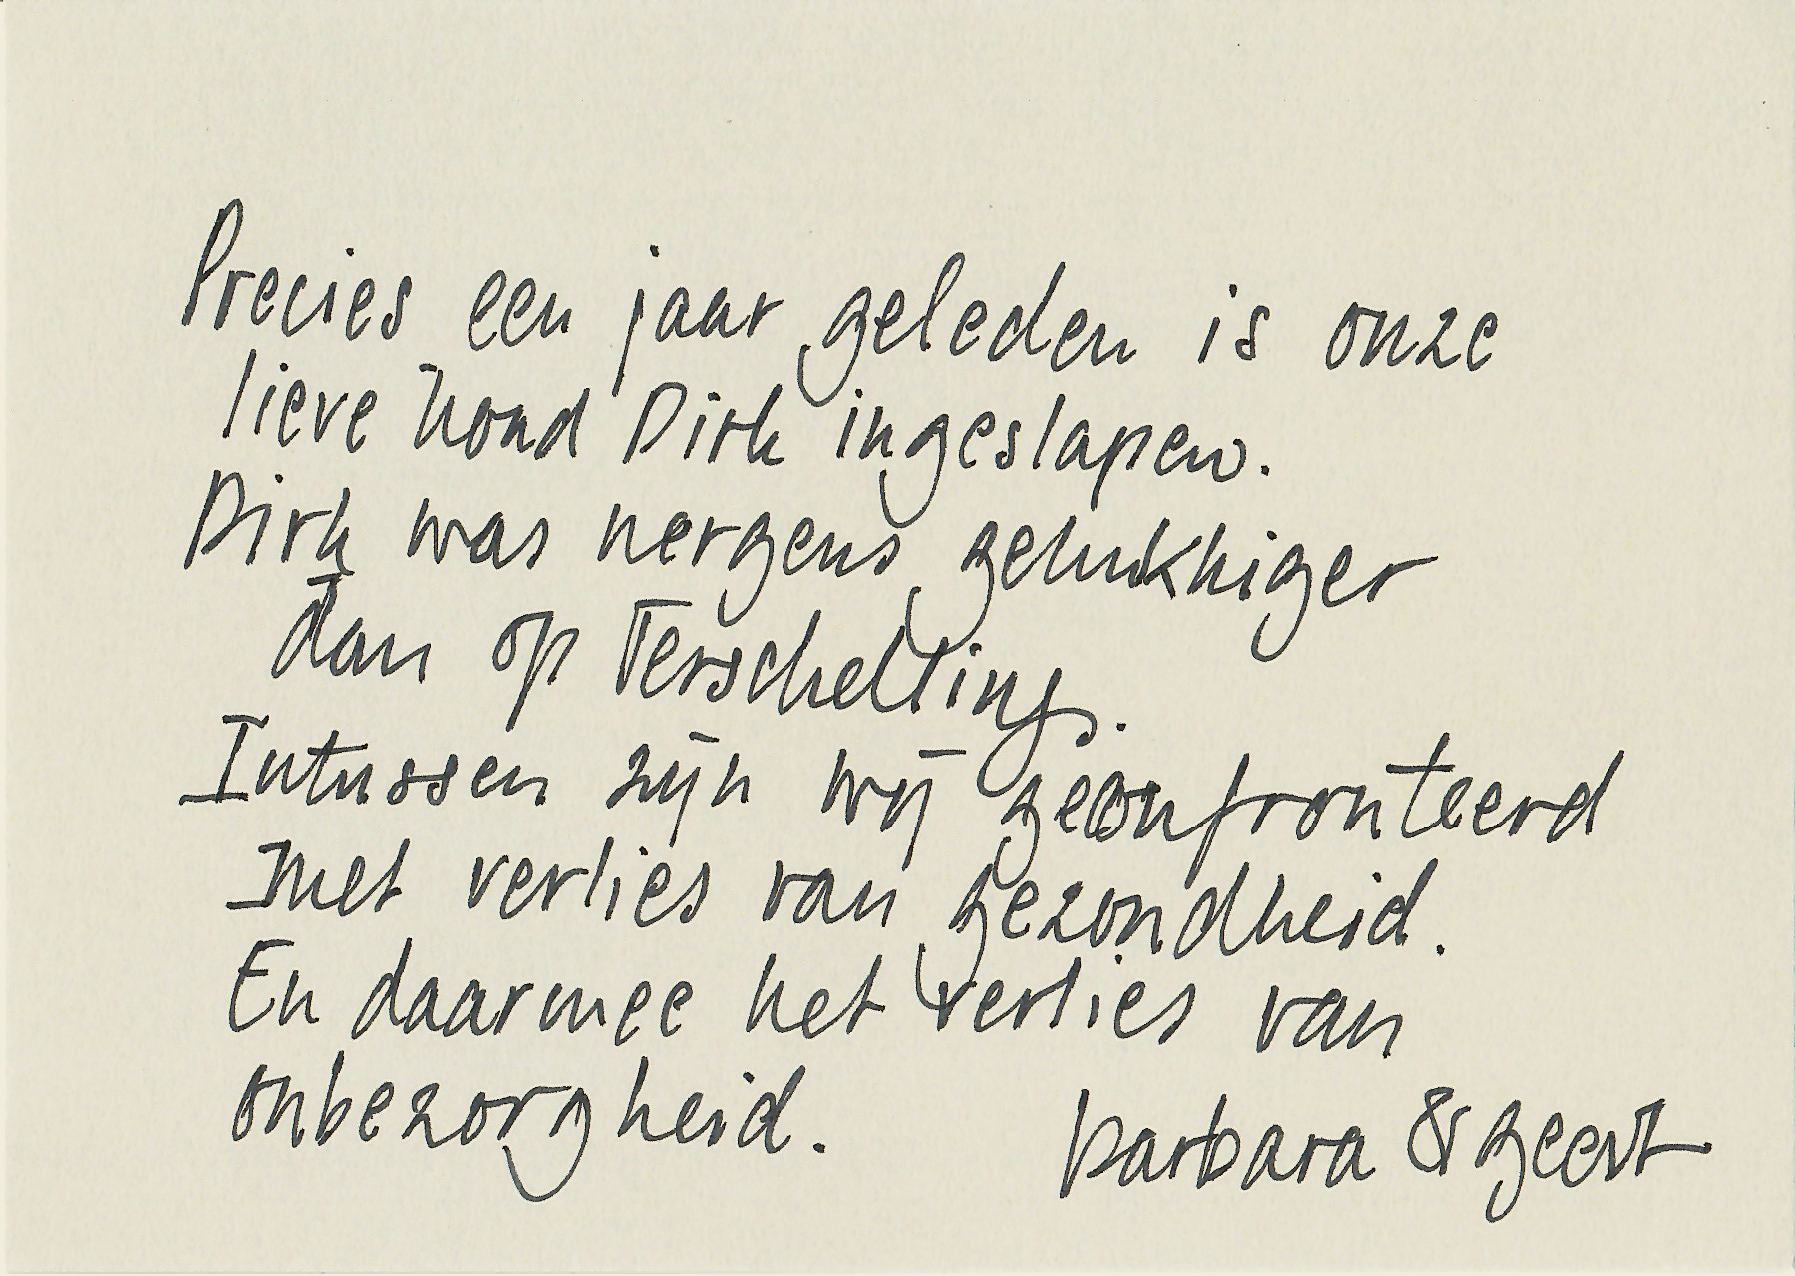 Precies een jaar geleden is onze
lieve hond Dirk ingeslapen.
Dirk was nergens gelukkiger
dan op Terschelling.
Intussen zijn wij geconfronteerd
met verlies van gezondheid.
En daarmee het verlies van
onbezorgheid.
barbara & geert